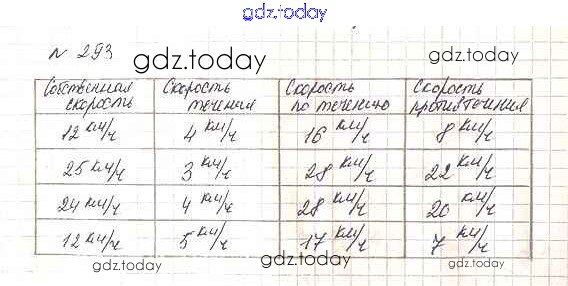 gdz.today
№ 293
gdz.today
gdz.today
Собственная скорость
Скорость течения
Скорость по течению
Скорость против течения
12 км/ч 4 км/ч 16 км/ч 8 км/ч
25 км/ч 3 км/ч 28 км/ч 22 км/ч
24 км/ч 4 км/ч 28 км/ч 20 км/ч
12 км/ч 5 км/ч 17 км/ч 7 км/ч
gdz.today
gdz.today
gdz.today